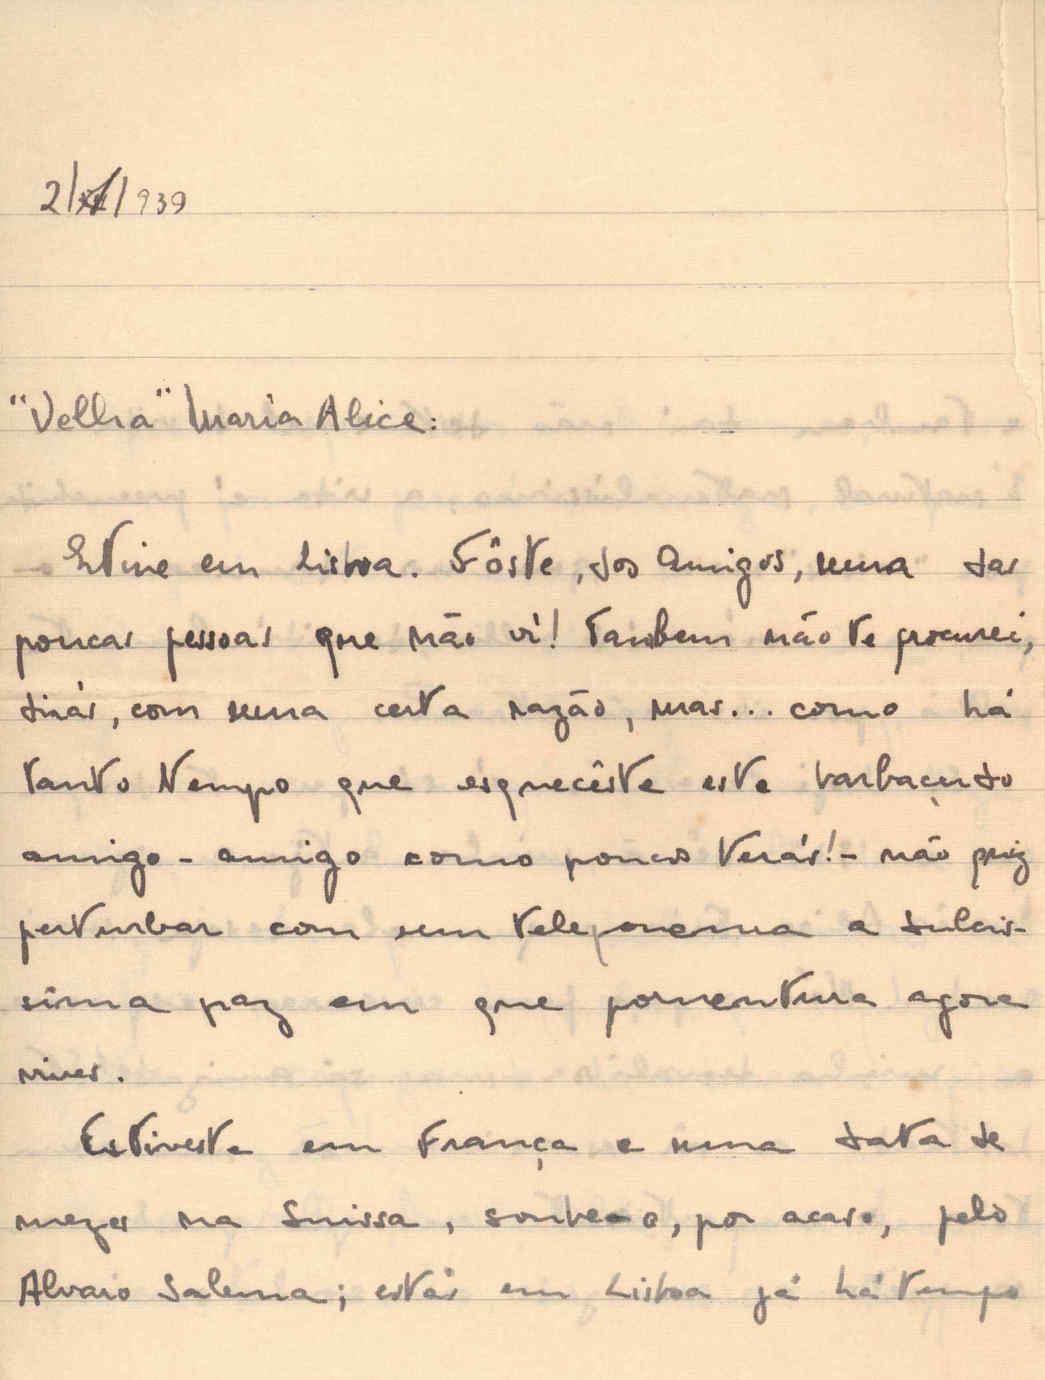 2/ /939
"Velha" Maria Alice:
Estive em Lisboa. Fôste, dos amigos, uma das
poucas pessoas que não vi! Tambem não te procurei,
dirás, com uma certa razão, mas... como há
tanto tempo que esquecêste este barbaçudo
amigo - amigo como poucos terás! - não quiz
perturbar com um telefonema a dulcis-
sima paz em que porventura agora
vives.
Estiveste em França e uma data de
mezes na Suissa, soube-o, por acaso, pelo
Alvaro Salema; estás em Lisboa já há tempo